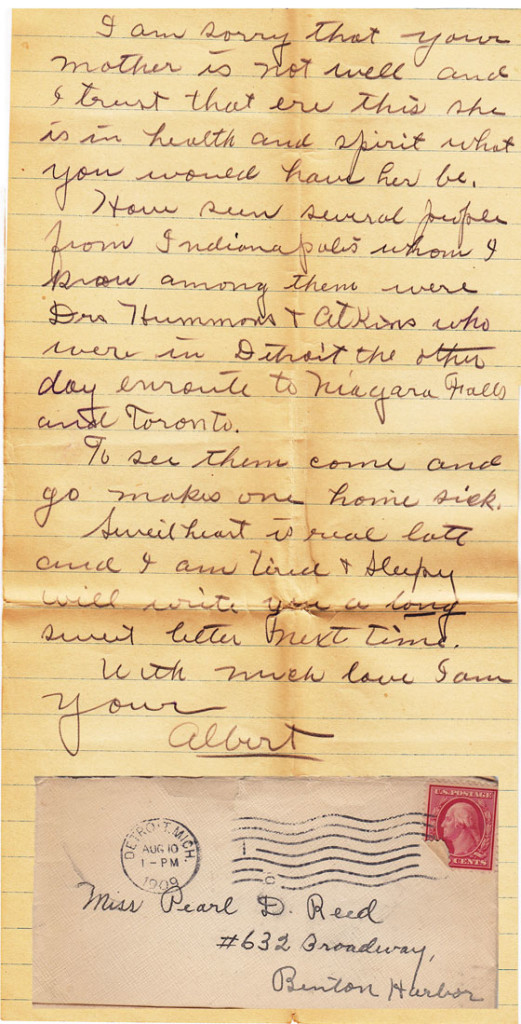 I am sorry that your
mother is not well and
I trust that ere this she
is in health and spirit what
you would have her be.
Have seen several people
from Indianapolis whom I
know among them were
Drs Hummons & Atkins who
were in Detroit the other
day enroute to Niagara Falls
and Toronto.
To see them come and
go makes one home sick.
Sweetheart is real late
and I am tired & sleepy
will write you a long
sweet letter next time.
With much love I am
your
Albert
DETROIT, MICH.
AUG 10
1-PM
1909
U.S. POSTAGE
CENTS
Miss Pearl D. Reed
#632 Broadway,
Benton Harbor